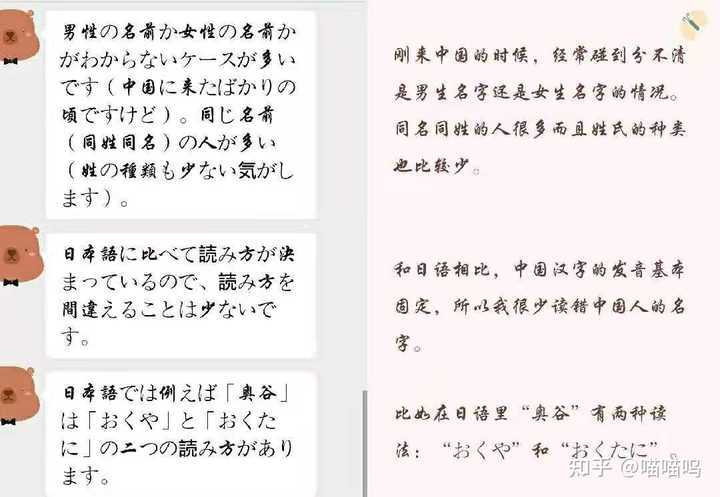 男性の名前か女性の名前か
がわからないケースが多い
です（中国に来たばかりの
頃ですけど）。同じ名前
（同姓同名）の人が多い
（姓の種類も少ない気がし
ます）。
日本語に比べて読み方が決
まっているので、読み方を
間違えることは少ないで
す。
日本語では例えば「奥谷」
は「おくや」と「おくた
に」の二つの読み方があり
ます。
刚来中国的时候，经常碰到分不清
是男生名字还是女生名字的情况。
同名同姓的人很多而且姓氏的种类
也比较少。
和日语相比，中国汉字的发音基本
固定，所以我很少读错中国人的名
字。
比如在日语里“奥谷”有两种读
法：“おくや”和“おくたに”。
知乎 @喵喵呜